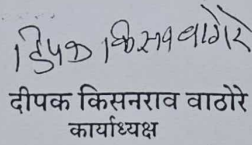 दिपक किसनराव वाठोरे
दीपक किसनराव वाठोरे
कार्याध्यक्ष